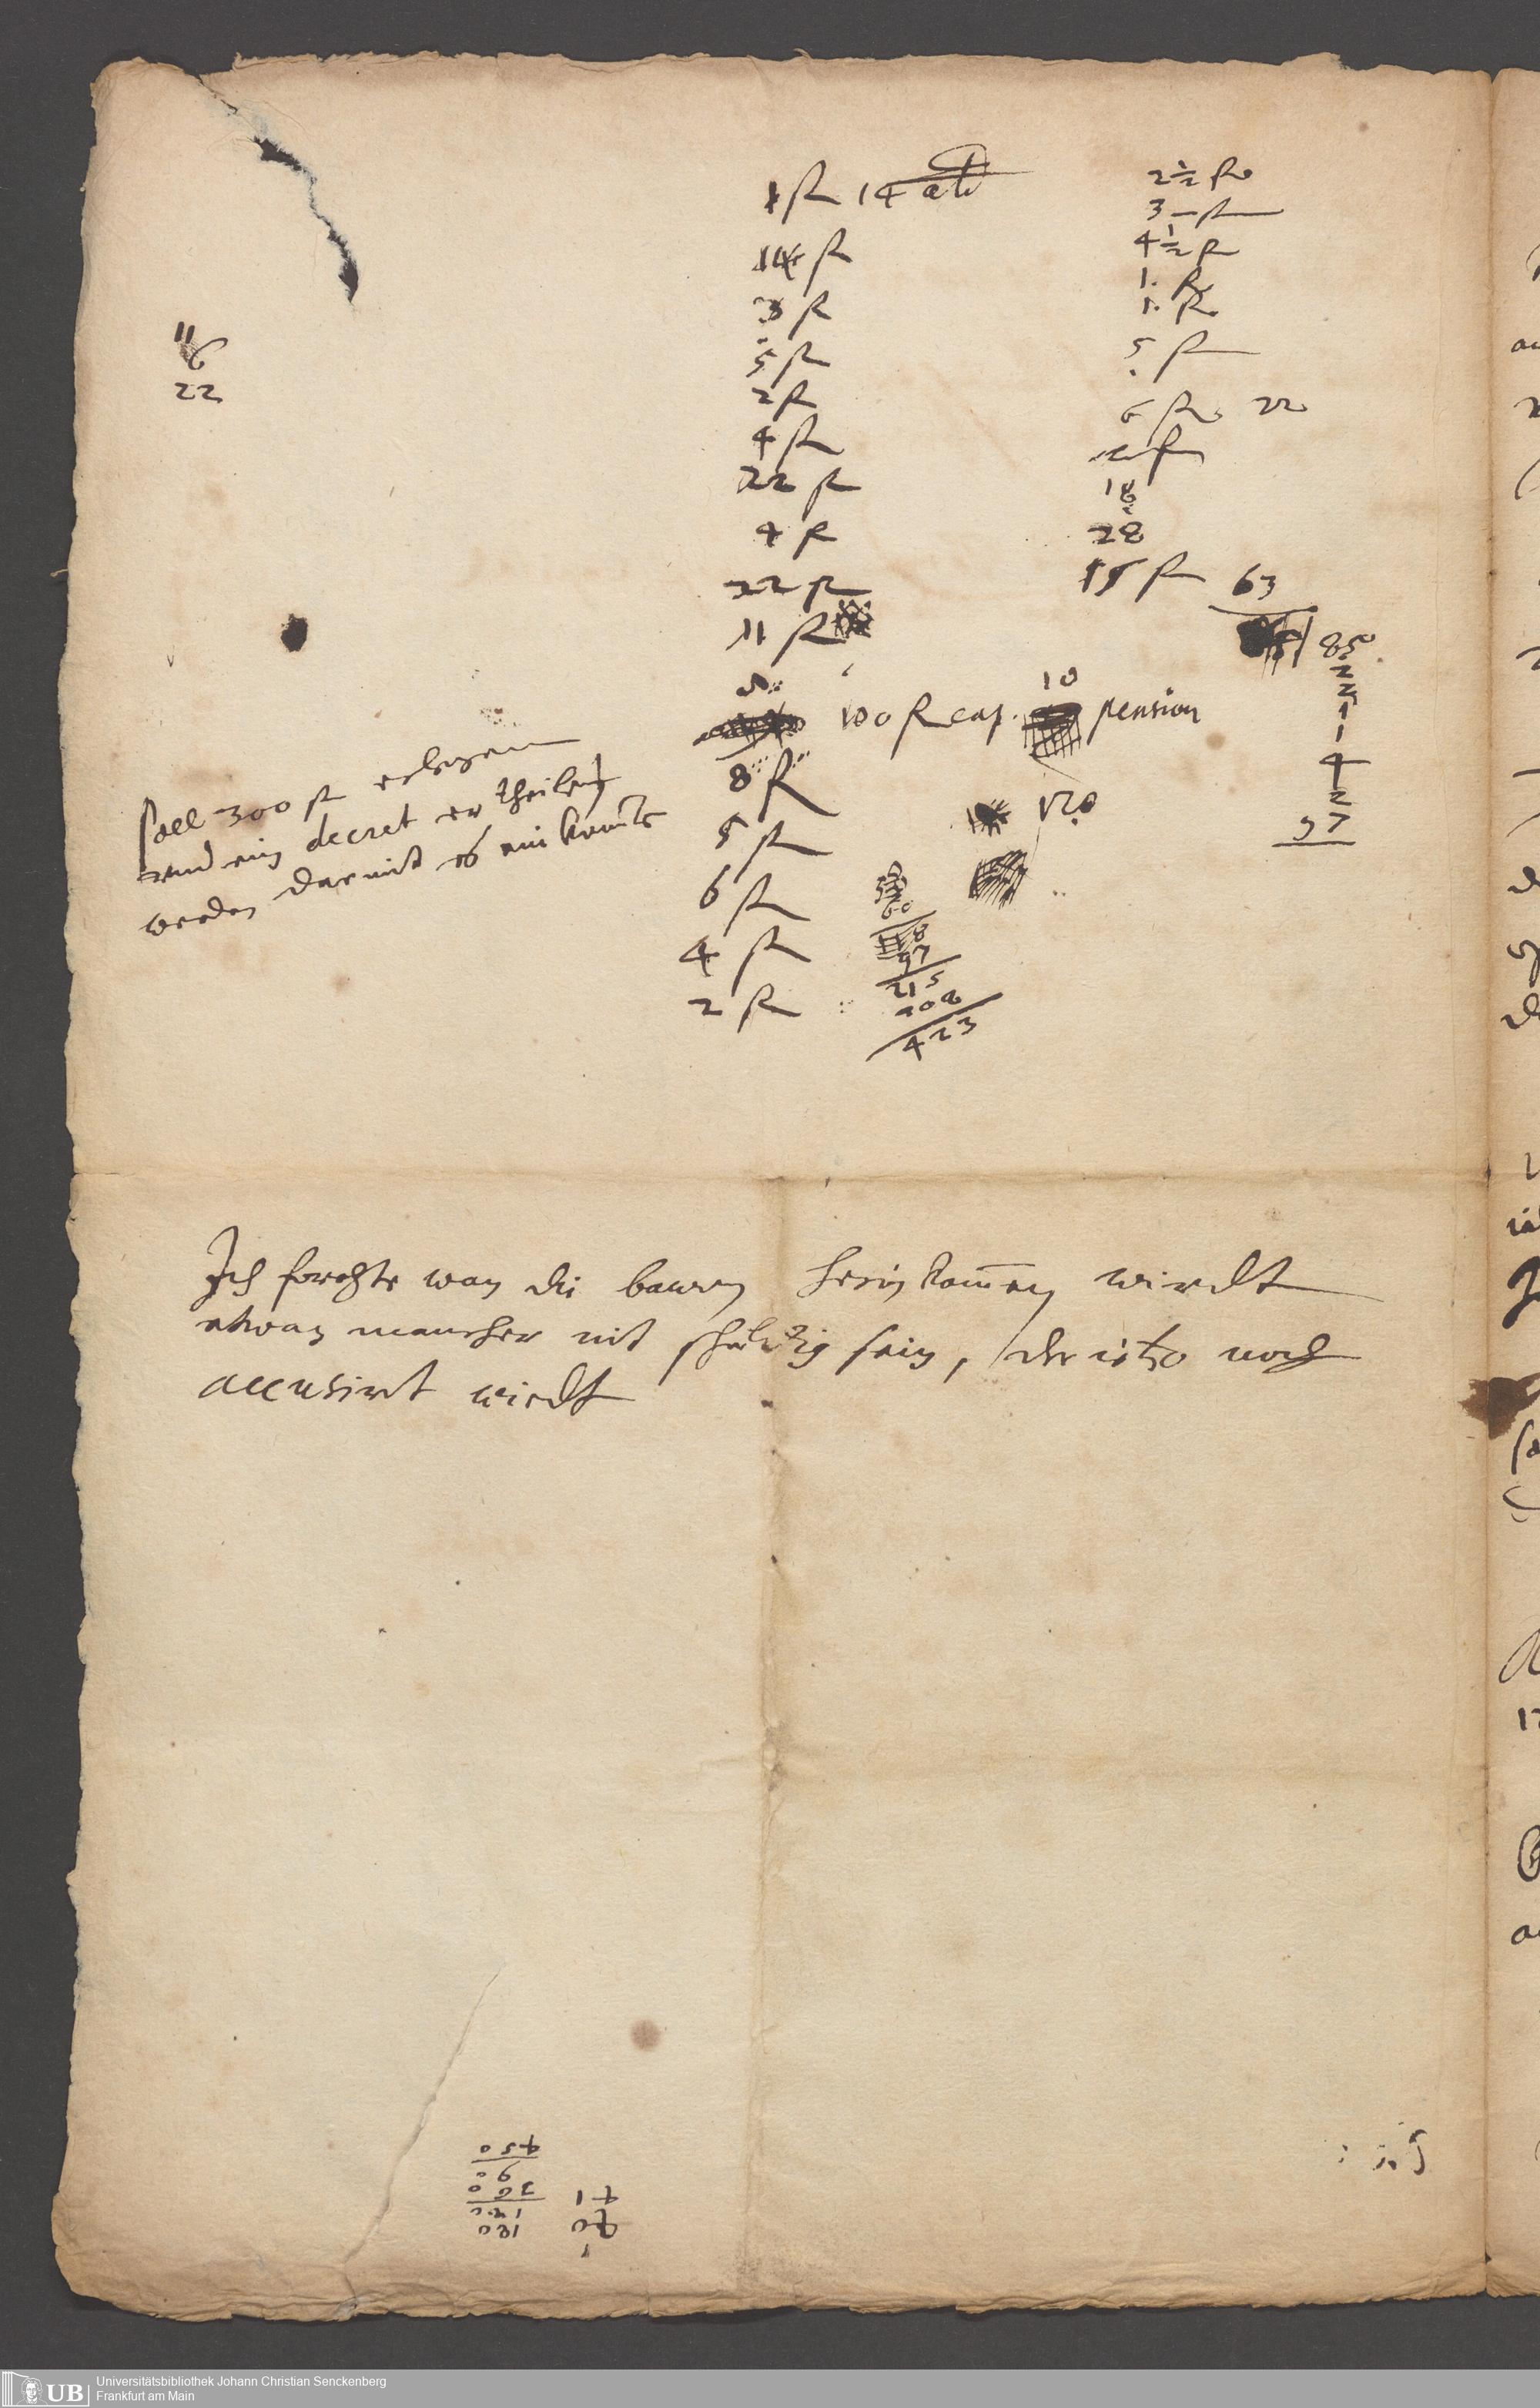 11
6
22
1 fl 14 alb
14 fl
3 fl
5 fl
2 fl
4 fl
22 fl
4 fl
22 fl
11 fl
100 fl cap. 10 pension
8 fl
5 fl
6 fl
4 fl
2 fl
2½ fl
3 – fl
4½ fl
1. fl
1. fl
5 fl
6 fl 22
fl
18
28
15 fl 63
85
2
2
1
1
4
2
97
120
60
8
97
215
208
423
soll 300 fl erlegen
und ein decret ertheilen
werden darmit es einkomme
Ich forchte wan die bauren herein kom̄en wirdt
etwan mancher nit schuldig sein, der itzo noch
accusirt wirdt
180
180
360
90
450
41
Universitätsbibliothek Johann Christian Senckenberg
Frankfurt am Main
UB